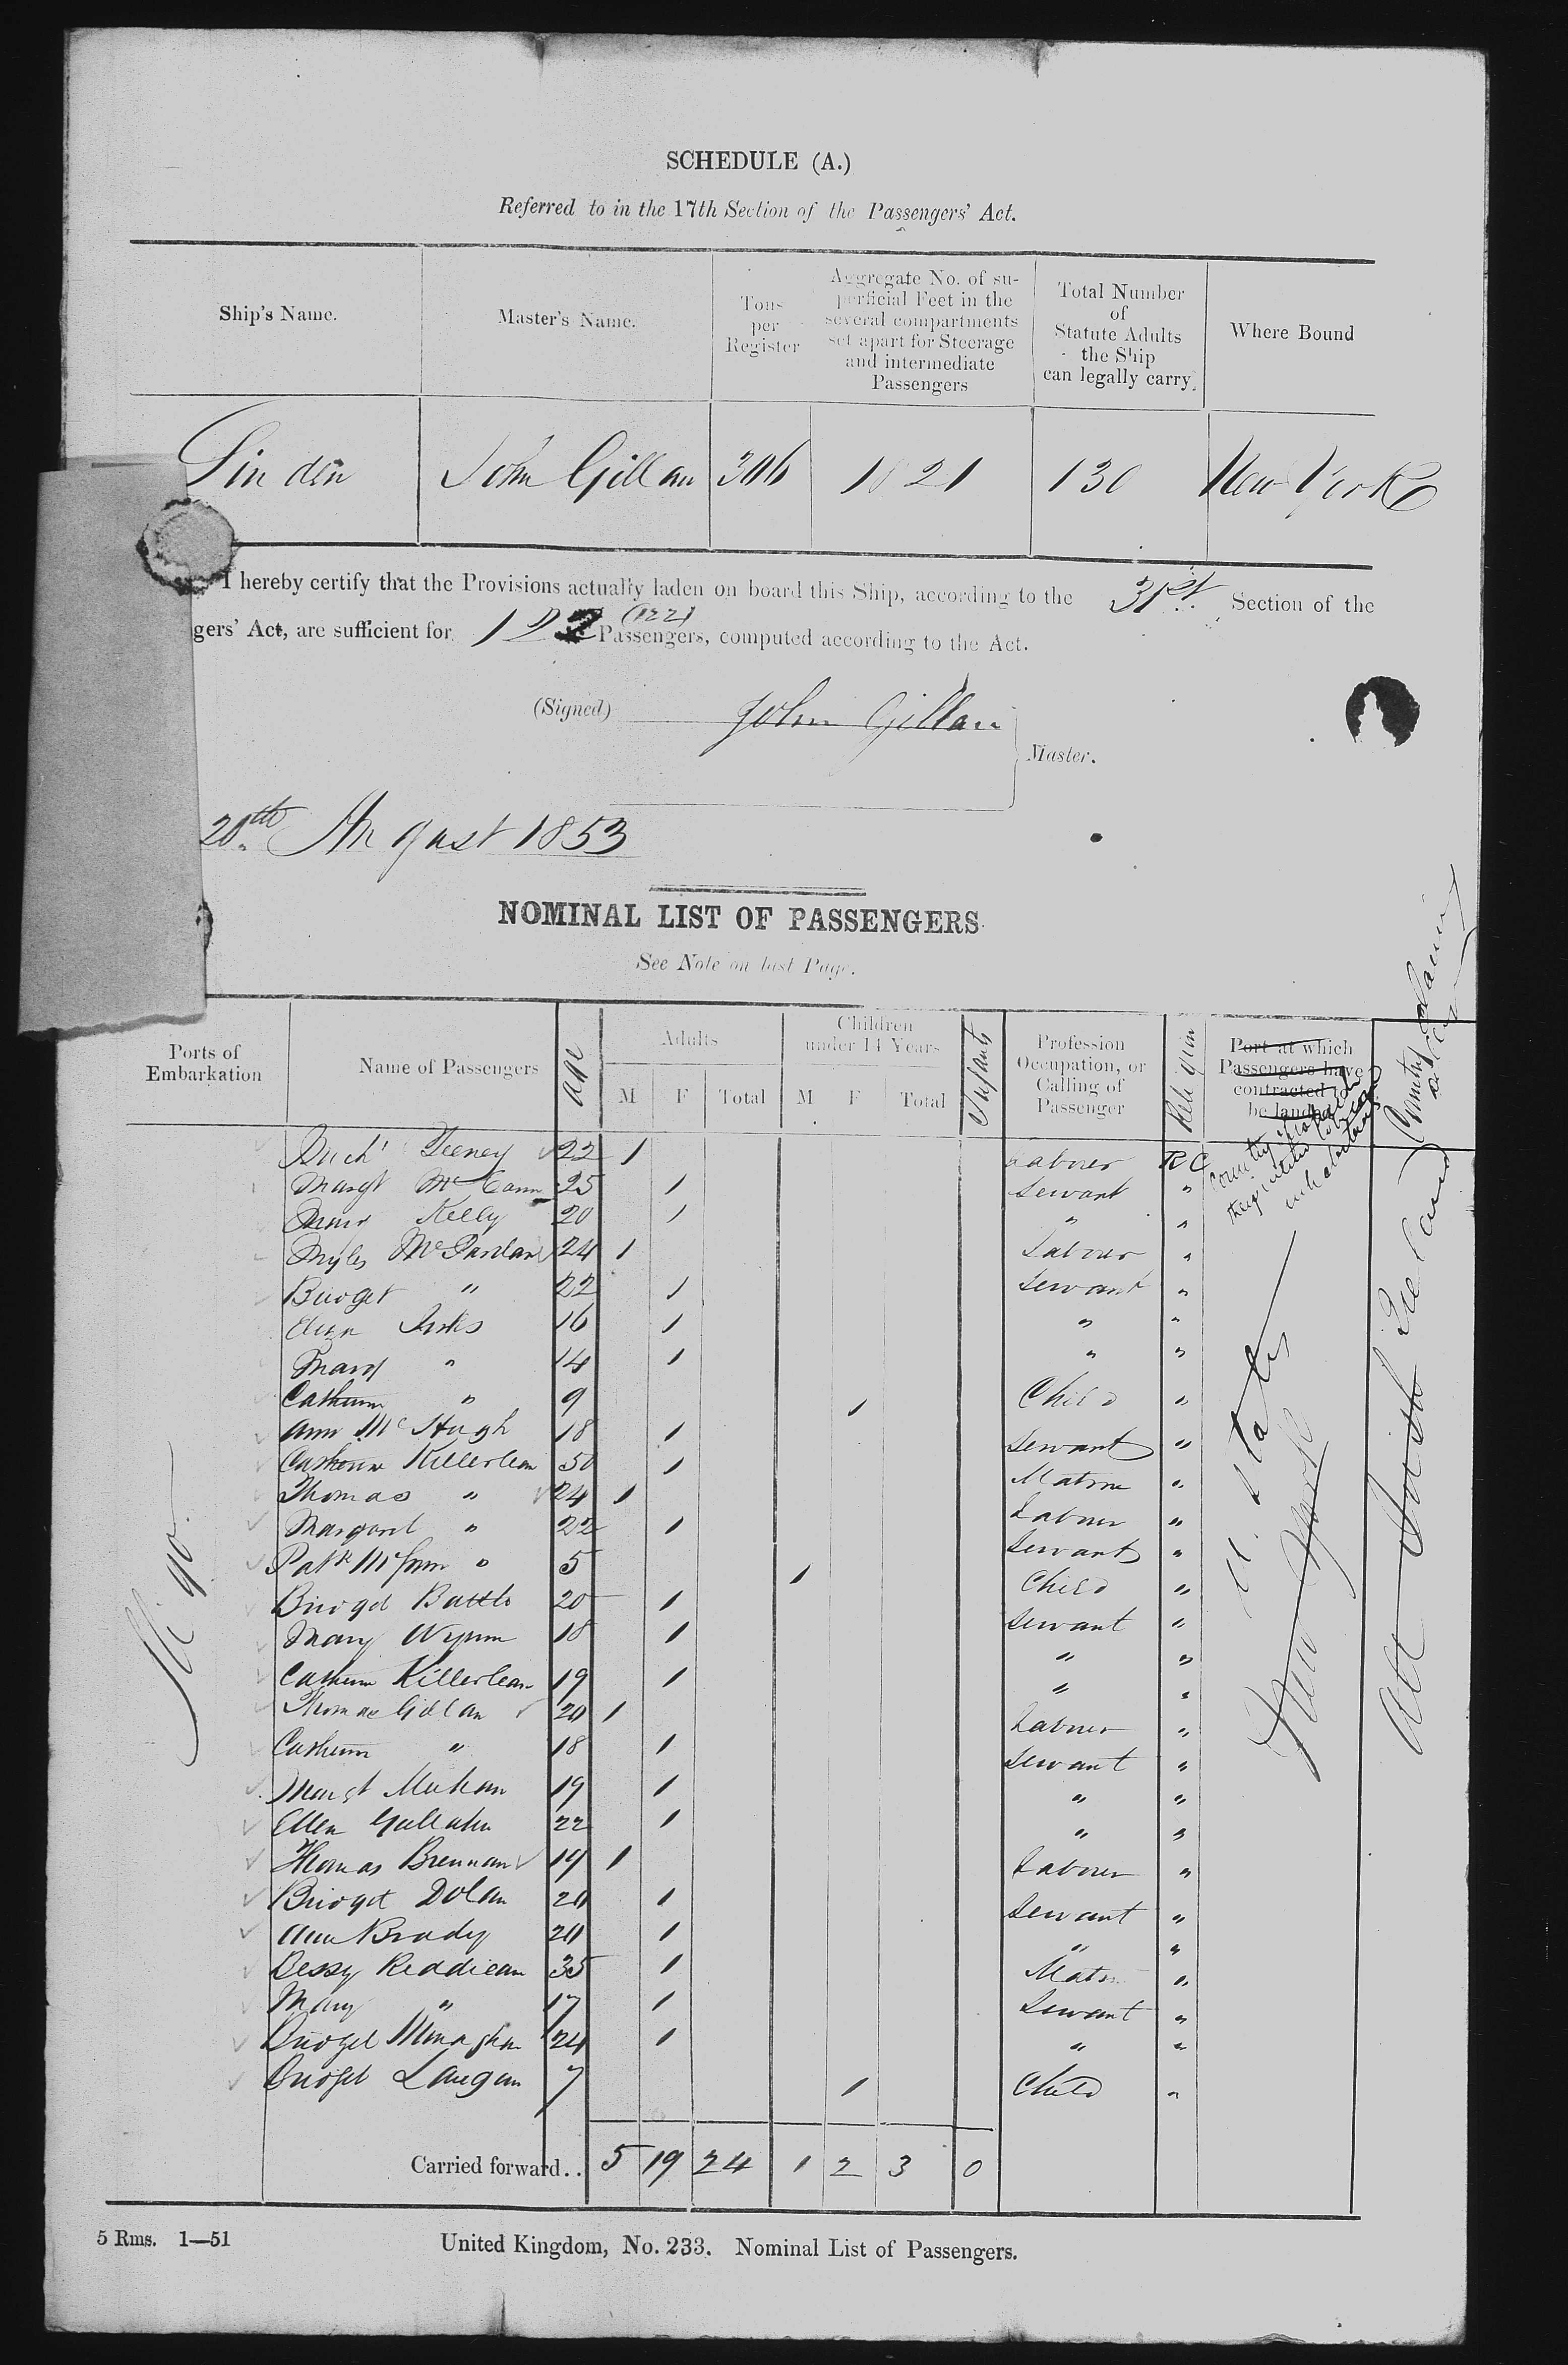 SCHEDULE (A.)
Referred to in the 17th Section of the Passengers' Act.
Ship's Name. Master's Name. Tons per Register Aggregate No. of superficial Feet in the several compartments set apart for Steerage and intermediate Passengers Total Number of Statute Adults the Ship can legally carry. Where Bound
Linden John Gillan 306 1821 130 New York
I hereby certify that the Provisions actually laden on board this Ship, according to the 31st. Section of the
gers' Act, are sufficient for 122 (122) Passengers, computed according to the Act.
(Signed) John Gillan
Master.
20th August 1853
NOMINAL LIST OF PASSENGERS
See Note on last Page.
Ports of Embarkation Name of Passengers Age Adults M F Total Children under 14 Years M F Total Infants Profession Occupation, or Calling of Passenger Religion Port at which Passengers have contracted to be landed
Sligo
Mich' Feeney 22 1 Laborer R C
Margt McCann 25 1 Servant "
Mary Kelly 20 1 " "
Myles McPartlan 24 1 Laborer "
Bridget " 22 1 Servant "
Eliza 16 1 " "
Mary " 14 1 " "
Catherine " 9 1 Child "
Ann McHugh 18 1 Servant "
Catherine Killerlean 50 1 Matron "
Thomas " 24 1 Laborer "
Margaret " 22 1 Servant "
Patk " 5 1 Child "
Bridget Battle 20 1 Servant "
Mary Wynne 18 1 " "
Catherine Killerlean 19 1 " "
Thomas Gillan 20 1 Laborer "
Catherine " 18 1 Servant "
Margt Meehan 19 1 " "
Ellen 22 1 " "
Thomas Brennan 19 1 Laborer "
Bridget Dolan 20 1 Servant "
Ann Brady 20 1 " "
Bessy Reddican 35 1 Matron "
Mary " 17 1 Servant "
Bridget Monaghan 24 1 " "
Bridget Langan 7 1 Child "
U. States
New York
All Irish Ireland
Carried forward.. 5 19 24 1 2 3 0
5 Rms. 1—51 United Kingdom, No. 233. Nominal List of Passengers.